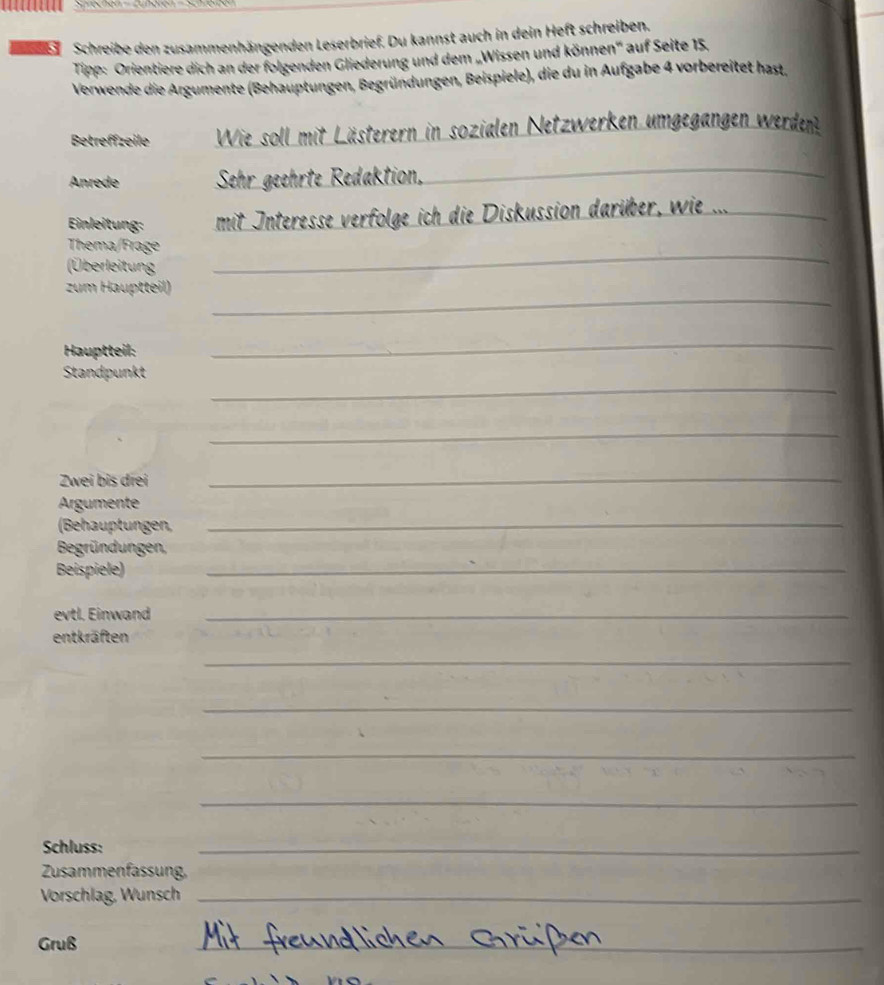 Sprechen – Zuhören – Schreiben
5 Schreibe den zusammenhängenden Leserbrief. Du kannst auch in dein Heft schreiben.
Tipp: Orientiere dich an der folgenden Gliederung und dem „Wissen und können" auf Seite 15.
Verwende die Argumente (Behauptungen, Begründungen, Beispiele), die du in Aufgabe 4 vorbereitet hast.
Betreffzeile Wie soll mit Lästerern in sozialen Netzwerken umgegangen werden?
Anrede Sehr geehrte Redaktion,
Einleitung: mit Interesse verfolge ich die Diskussion darüber, wie ...
Thema/Frage
(Überleitung
zum Hauptteil)
Hauptteil:
Standpunkt
Zwei bis drei
Argumente
(Behauptungen,
Begründungen,
Beispiele)
evtl. Einwand
entkräften
Schluss:
Zusammenfassung,
Vorschlag, Wunsch
Gruß Mit freundlichen Grüßen